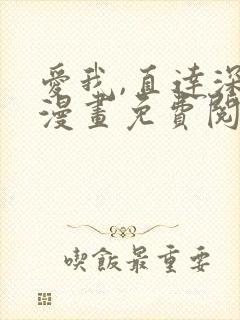 愛我,直達深
漫畫免費閱
喫飯最重要